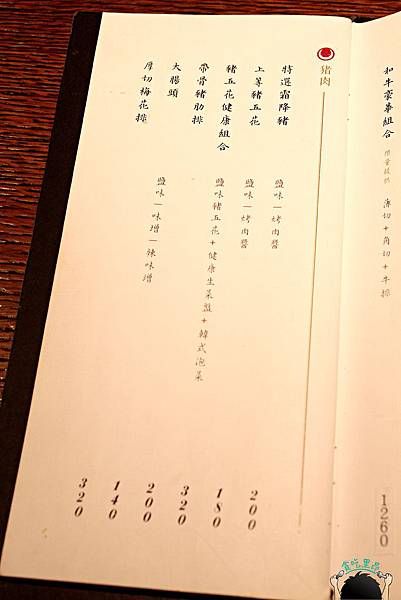 和牛豪華組合 限量提供 薄切+角切+牛排 1260
猪肉
特選霜降豬 鹽味|烤肉醬 200
上等豬五花 鹽味|烤肉醬 180
豬五花健康組合 鹽味豬五花+健康生菜盤+韓式泡菜 320
帶骨豬肋排 200
大腸頭 鹽味|味增|辣味增 140
厚切梅花排 320
貪吃里昂